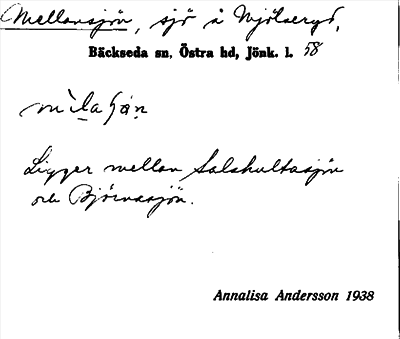 Mellansjön, sjö å Mjölseryd,
Bäckseda sn, Östra hd, Jönk. l. 58
Ligger mellan Salshultasjön
och Björnasjön.
Annalisa Andersson 1938